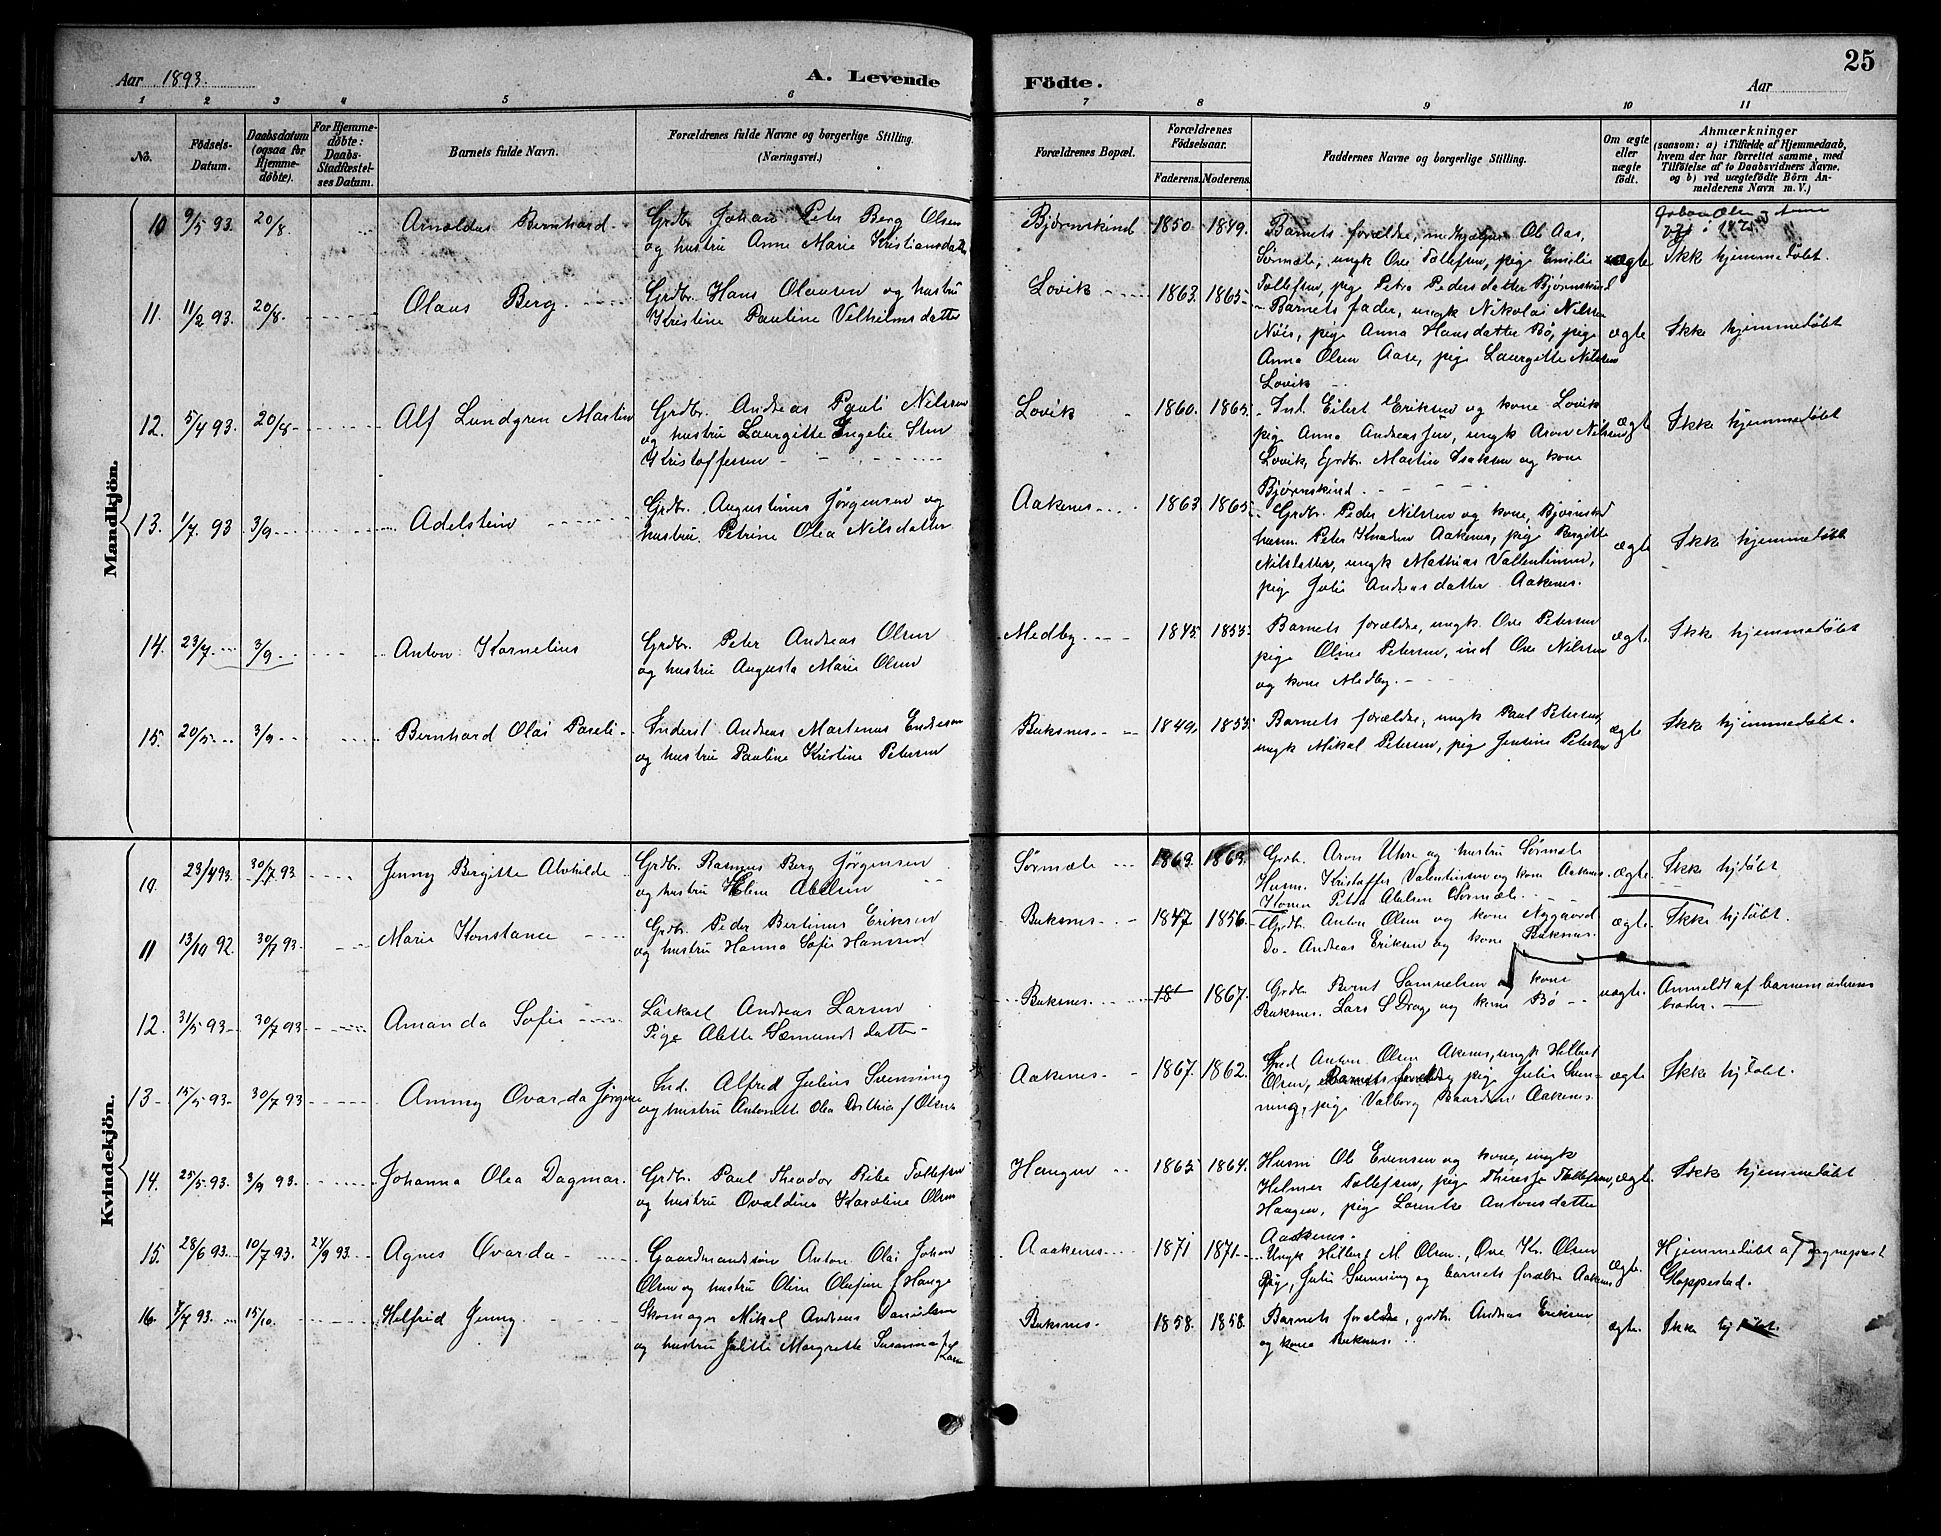 Aar 1893.
A. Levende
Födte.
Aar
25
1 2 3 4 5 6 7 8 9 10 11
No.
Födsels-Datum.
Daabsdatum (ogsaa for Hjemme-döbte).
For Hjemme-döbte: Daabs-Stadfæstel-ses Datum.
Barnets fulde Navn.
Forældrenes fulde Navne og borgerlige Stilling.
(Næringsvei.)
Forældrenes Bopæl.
Forældrenes Födselsaar.
Faderens. Moderens.
Faddernes Navne og borgerlige Stilling.
Om ægte eller uægte födt.
Anmærkninger
(saasom: a) i Tilfælde af Hjemmedaab, hvem der har forrettet samme, med Tilföielse af to Daabsvidners Navne, og b) ved uægtefödte Börn An-melderens Navn m. V.)
Mandkjön.
10 9/5 93. 20/8. Arnoldus Bernhard.
Grdbr. Johan Peter Berg Olsen
og hustru Anne Marie Kristiansdatter
Bjørnskind 1850 1849.
Barnets forældre, medhjælper Ol. Aas,
Sørmæle, ungk Ove Tollefsen, pige Emelie
Tollefsen, pige Petra Pedersdatter Bjørnskind
ægte Ikke hjemmedøbt.
11. 11/2 93. 20/8. Olaus Berg.
Grdbr. Hans Olausen og hustru
Kristine Pauline Vilhelmsdatter
Lovik 1863. 1865
Barnets fader, ungk Nikolai Nilsen
Nøis, pige Anna Hansdatter Bø, pige
Anna Olsen Aase, pige Laurgitte Nilsen
Lovik
ægte Ikke hjemmedøbt
12. 5/4 93. 20/8 Alf Lundgren Martin
Grdbr. Andreas Pauli Nilsen
og hustru Laurgitte Ingelie Sten
Kristoffersen
Lovik 1860. 1865.
Ind. Eilert Eriksen og kone Lovik
pige Anna Andreassen, ungk Aron Nilsen
Lovik, Grdbr. Martin Isaksen og kone
Bjørnskind.
ægte Ikke hjemmedøbt
13. 1/7. 93 3/9 Adelstein
Grdbr. Augustinus Jørgensen og
hustru. Petrine Olea Nilsdatter
Aakenes 1863 1865
Grdbr. Peder Nilsen og kone, Bjørnskind
husm. Peter Knudsen Aakenes, pige Bergitte
Nilsdatter, ungk Mathias Vallentinsen,
pige Julie Andreasdatter Aakenes.
ægte Ikke hjemmedøbt
14. 23/7 3/9 Anton Kornelius
Grdbr. Peter Andreas Olsen
og hustru Augusta Marie Olsen
Medby 1845 1855
Barnets forældre, ungk. Ove Petersen
pige Oline Petersen, ind Ove Nilsen
og kone Medby.
ægte Ikke hjemmedøbt
15. 20/5 3/9 Bernhard Olai Pareli
Inderst Andreas Martenus Endresen
og hustru Pauline Kristine Petersen
Buksnes 1849. 1855
Barnets forældre, ungk Paul Petersen,
ungk Mikal Petersen, pige Jensine Petersen
ægte Ikke hjemmedøbt.
Kvindekjön.
10. 23/4 93. 30/7 93 Jenny Birgitte Alvhilde
Grdbr. Rasmus Berg Jørgensen
og hustru Helene Abelsen
Sørmæle 1869. 1863.
Grdb. Aron Uhre og hustru Sørmæle
Husm. Kristoffer Valentinsen og kone Aakenes.
Konen Petra Abelsen Sørmæle.
ægte Ikke hjdøbt
11 13/10 92. 30/7 93. Marie Konstance
Grdb. Peder Bertinus Eriksen
og hustru Hanna Sofie Hansen
Buksnes 1847 1856
Grdb. Anton Olsen og kone Nygaard
Do Andreas Eriksen og kone Buksnes.
ægte. Ikke hjdøbt.
12. 31/5 93 30/7 93 Amanda Sofie
Løskarl Andreas Larsen
Pige Alette Sæmundsdatter
Buksnes. 18 1867.
Grdb. Bernt Samuelsen kone
Buksnes. Lars S Drage og kone Bø
uægte. Anmeldt af barnemoderens
broder.
13 15/5 93 30/7 93 Ammy Ovarda Jørgine
Ind. Alfred Julius Svenning
og hustru Antonette Olea Dorthea f Olsen
Aakenes 1867. 1862.
Ind Anton Olsen Akenes, ungk Hilbert
Olsen, Barnets forældre pige Julie Sven-
ning, pige Valborg Baardsen Aakenes.
ægte Ikke hjdøbt.
14. 25/5 93. 3/9 93. Johanna Olea Dagmar.
Grdb. Paul Theodor Ribe Tollefsen
og hustru Ovaldine Karoline Olsen
Haugen 1865 1864.
Husm Ol. Evensen og kone, ungk
Helmer Tollefsen, pige Theresje Tollefsen,
Haugen, pige Lorentse Antonsdatter
Aakenes.
ægte. Ikke hjemmedøbt
15. 28/6 93. 10/7 93. 24/9 93. Agnes Ovarda
Gaardmandssøn Anton Olai Johan
Olsen og hustru Oline Olufine f Hauge
Aakenes 1871 1871
Ungk Hilbert M Olsen, Ove Kr. Olsen
Pige, Julie Svenning og barnets forældre Aakenes
ægte. Hjemmedøbt af Sogneprest
Gloppestad.
16. 7/7 93. 15/10. Helfrid Jenny
Skomager Mikal Andreas Danielsen
og hustru Jalitte Margrethe Susanna f Larsen
Buksnes. 1858. 1858.
Barnets forældre, grdb. Andreas Eriksen
og kone Buksnes.
ægte. Ikke hjdøbt.